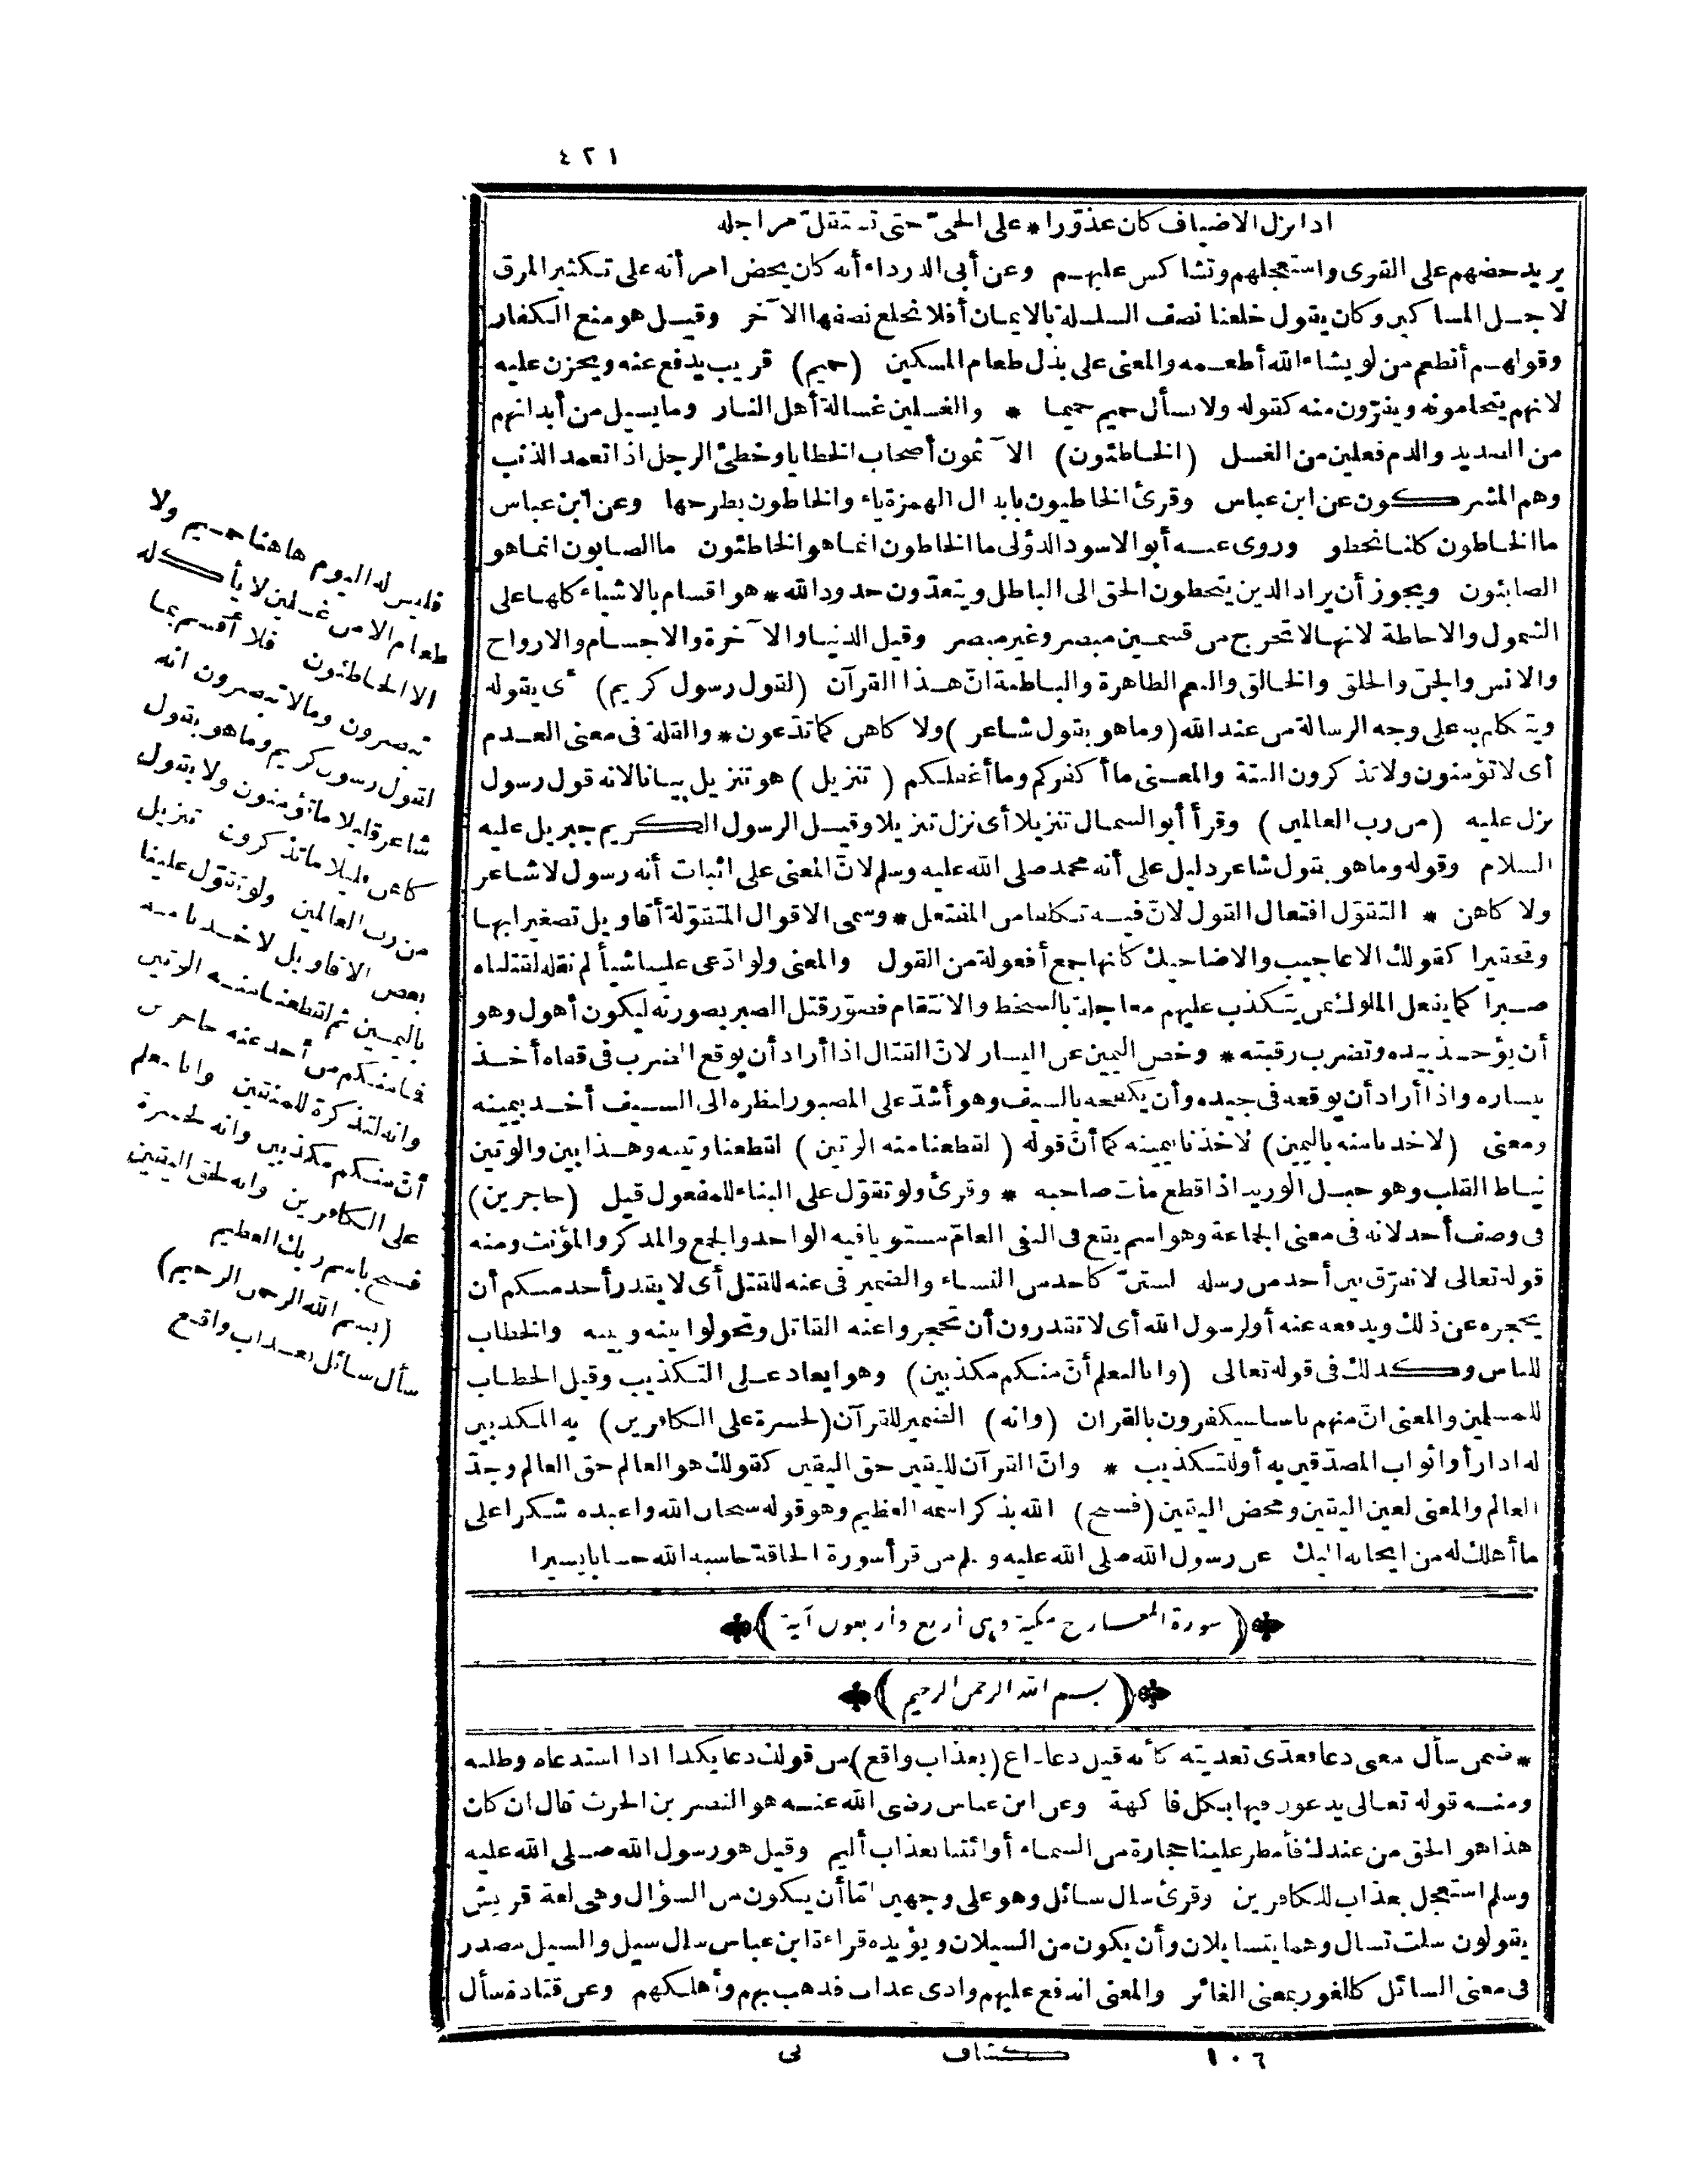 ٤٢١
اذا نزل الاضياف كان عذوّرا * على الحىّ حتى تستقلّ مراجله
يريد حضهم على القرى واستعجلهم وتشاكس عليهم وعن أبى الدرداء أنه كان يحض امرأته على تكثير المرق
لاجل المساكين وكان يقول خلعنا نصف السلسلة بالايمان أفلا نخلع نصفها الآخر وقيل هو منع الكفار
وقولهم أنطعم من لو يشاء الله أطعمه والمعنى على بذل طعام المسكين (حميم) قريب يدفع عنه ويحزن عليه
لانهم يتحامونه ويفرّون منه كقوله ولا يسأل حميم حميما * والغسلين غسالة أهل النار وما يسيل من أبدانهم
من الصديد والدم فعلين من الغسل (الخاطئون) الآثمون أصحاب الخطايا وخطئ الرجل اذا تعمد الذنب
وهم المشركون عن ابن عباس وقرئ الخاطيون بابدال الهمزة ياء والخاطون بطرحها وعن ابن عباس
ما الخاطون كلنا نخطو وروى عنه أبو الاسود الدؤلى ما الخاطون انما هو الخاطئون ما الصابون انما هو
الصابئون ويجوز أن يراد الذين يتخطون الحق الى الباطل ويتعدّون حدود الله * هو اقسام بالاشياء كلها على
الشمول والاحاطة لانها لا تخرج من قسمين مبصر وغير مبصر وقيل الدنيا والآخرة والاجسام والارواح
والانس والجنّ والخلق والخالق والنعم الظاهرة والباطنة انّ هذا القرآن (لقول رسول كريم) أى يقوله
ويتكلم به على وجه الرسالة من عند الله (وما هو بقول شاعر) ولا كاهن كما تدّعون * والقلة فى معنى العدم
أى لا تؤمنون ولا تذكرون البتة والمعنى ما أكفركم وما أغفلكم (تنزيل) هو تنزيل بيانا لانه قول رسول
نزل عليه (من رب العالمين) وقرأ أبو السمال تنزيلا أى نزل تنزيلا وقيل الرسول الكريم جبريل عليه
السلام وقوله وما هو بقول شاعر دليل على أنه محمد صلى الله عليه وسلم لانّ المعنى على اثبات أنه رسول لا شاعر
ولا كاهن * التقوّل افتعال القول لانّ فيه تكلفا من المفتعل * وسمى الاقوال المتقوّلة أقاويل تصغيرا بها
وتحقيرا كقولك الاعاجيب والاضاحيك كأنها جمع أفعولة من القول والمعنى ولو ادّعى علينا شيأ لم نقله لقتلناه
صبرا كما يفعل الملوك بمن يتكذب عليهم معاجلة بالسخط والانتقام فصوّر قتل الصبر بصورته ليكون أهول وهو
أن يؤخذ بيده وتضرب رقبته * وخص اليمين عن اليسار لانّ القتال اذا أراد أن يوقع الضرب فى قفاه أخذ
بيساره واذا أراد أن يوقعه فى جيده وأن يكفحه بالسيف وهو أشدّ على المصبور لنظره الى السيف أخذ بيمينه
ومعنى (لاخذنا منه باليمين) لاخذنا بيمينه كما أنّ قوله (لقطعنا منه الوتين) لقطعنا وتينه وهذا بين والوتين
نياط القلب وهو حبل الوريد اذا قطع مات صاحبه * وقرئ ولو تقوّل على البناء للمفعول قيل (حاجزين)
فى وصف أحد لانه فى معنى الجماعة وهو اسم يقع فى النفى العامّ مستويا فيه الواحد والجمع والمذكر والمؤنث ومنه
قوله تعالى لا نفرّق بين أحد من رسله لستنّ كأحد من النساء والضمير فى عنه للقتل أى لا يقدر أحد منكم أن
يحجزه عن ذلك ويدفعه عنه أو لرسول الله أى لا تقدرون أن تحجزوا عنه القاتل وتحولوا بينه وبينه والخطاب
للناس وكذلك فى قوله تعالى (وانا لنعلم أنّ منكم مكذبين) وهو ايعاد على التكذيب وقيل الخطاب
للمسلمين والمعنى انّ منهم ناسا سيكفرون بالقرآن (وانه) الضمير للقرآن (لحسرة على الكافرين) به المكذبين
له اذا رأوا ثواب المصدّقين به أو للتكذيب * وانّ القرآن لليقين حق اليقين كقولك هو العالم حق العالم وجدّ
العالم والمعنى لعين اليقين ومحض اليقين (فسبح) الله بذكر اسمه العظيم وهو قوله سبحان الله واعبده شكرا على
ما أهلك له من ايحائه اليك عن رسول الله صلى الله عليه وسلم من قرأ سورة الحاقة حاسبه الله حسابا يسيرا
(سورة المعارج مكية وهى أربع وأربعون آية)
(بسم الله الرحمن الرحيم)
* ضمن سأل معنى دعا فعدّى تعديته كأنه قيل دعا داع (بعذاب واقع) من قولك دعا بكذا اذا استدعاه وطلبه
ومنه قوله تعالى يدعون فيها بكل فاكهة وعن ابن عباس رضى الله عنه هو النضر بن الحرث قال ان كان
هذا هو الحق من عندك فأمطر علينا حجارة من السماء أو ائتنا بعذاب أليم وقيل هو رسول الله صلى الله عليه
وسلم استعجل بعذاب للكافرين وقرئ سال سائل وهو على وجهين امّا أن يكون من السؤال وهى لغة قريش
يقولون سلت تسال وهما يتسايلان وأن يكون من السيلان ويؤيده قراءة ابن عباس سال سيل والسيل مصدر
فى معنى السائل كالغور بمعنى الغائر والمعنى اندفع عليهم وادى عذاب فذهب بهم وأهلكهم وعن قتادة سأل
فليس له اليوم هاهنا حميم ولا
طعام الا من غسلين لا يأكله
الا الخاطئون فلا أقسم بما
تبصرون وما لا تبصرون انه
لقول رسول كريم وما هو بقول
شاعر قليلا ما تؤمنون ولا بقول
كاهن قليلا ما تذكرون تنزيل
من رب العالمين ولو تقوّل علينا
بعض الاقاويل لاخذنا منه
باليمين ثم لقطعنا منه الوتين
فما منكم من أحد عنه حاجزين
وانه لتذكرة للمتقين وانا لنعلم
أنّ منكم مكذبين وانه لحسرة
على الكافرين وانه لحق اليقين
فسبح باسم ربك العظيم
(بسم الله الرحمن الرحيم)
سأل سائل بعذاب واقع
١٠٦ كشاف نى